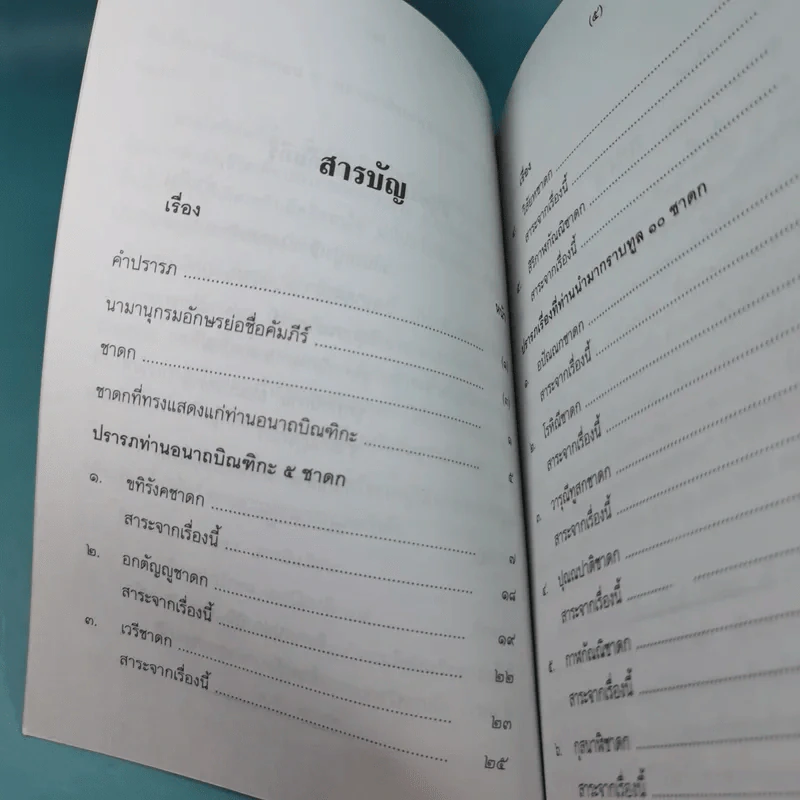 สารบัญ
เรื่อง
หน้า
คำปรารภ ........ (๑)
นามานุกรมอักษรย่อชื่อคัมภีร์ ........ (๓)
ชาดก ........ ๑
ชาดกที่ทรงแสดงแก่ท่านอนาถบิณฑิกะ ........ ๕
ปรารภท่านอนาถบิณฑิกะ ๕ ชาดก
๑. ขทิรังคชาดก ........ ๗
สาระจากเรื่องนี้ ........ ๑๘
๒. อกตัญญูชาดก ........ ๑๙
สาระจากเรื่องนี้ ........ ๒๒
๓. เวรีชาดก ........ ๒๓
สาระจากเรื่องนี้ ........ ๒๕
(๕)
เรื่อง
สาระจากเรื่องนี้
๕. สิริกาฬกัณณิชาดก
สาระจากเรื่องนี้
ปรารภเรื่องที่ท่านนำมากราบทูล ๑๐ ชาดก
๑. อปัณณกชาดก
สาระจากเรื่องนี้
๒. โรหิณีชาดก
สาระจากเรื่องนี้
๓. วารุณีทูสกชาดก
สาระจากเรื่องนี้
๔. ปุณณปาติชาดก
สาระจากเรื่องนี้
๕. กาฬกัณณิชาดก
สาระจากเรื่องนี้
๖. กุสนาฬิชาดก
สาระจากเรื่องนี้